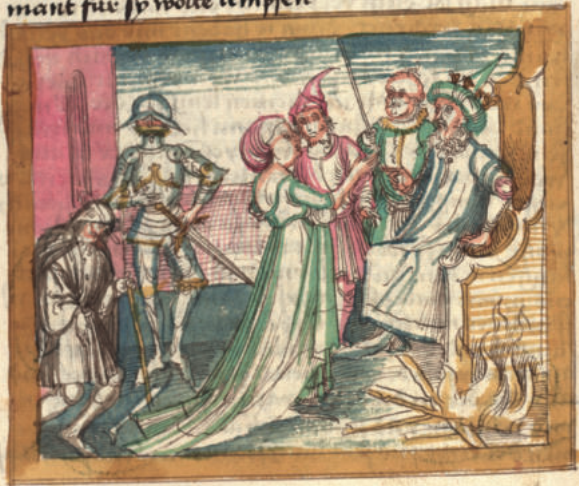 mant für sy wolte kempfen